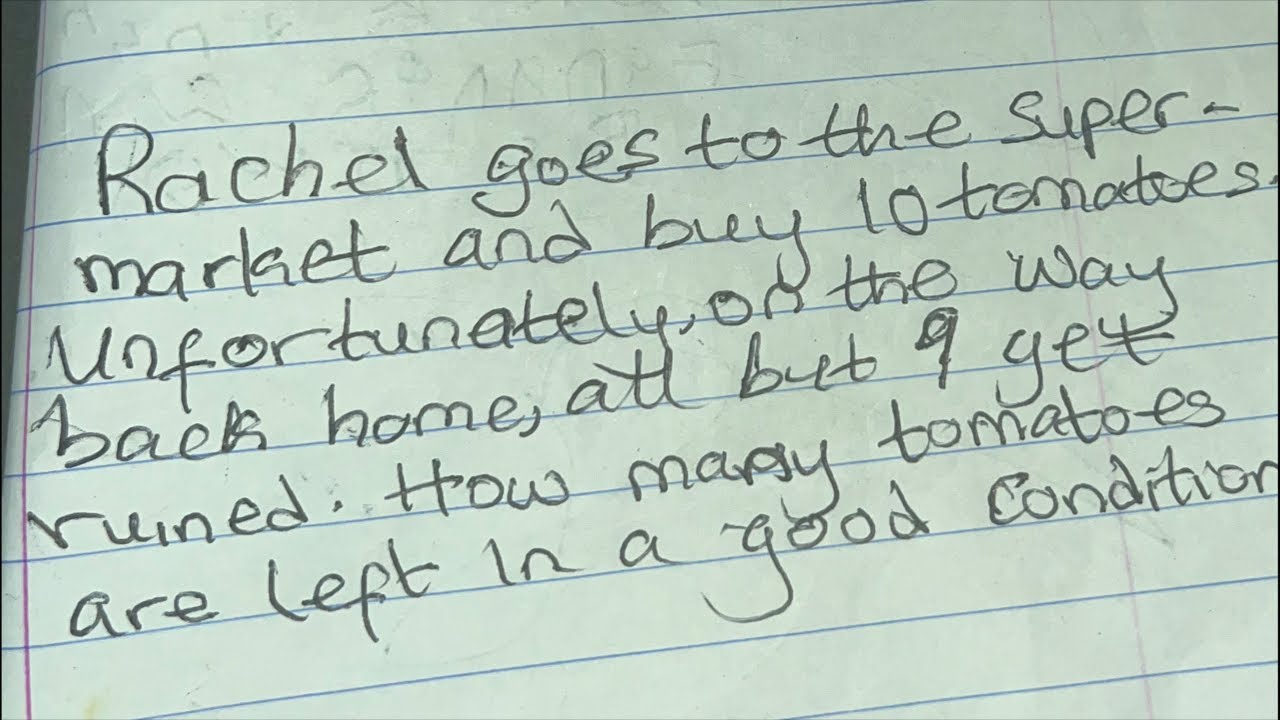 Rachel goes to the super-
market and buy 10 tomatoes.
Unfortunately, on the way
back home, all but 9 get
ruined. How many tomatoes
are left in a good condition